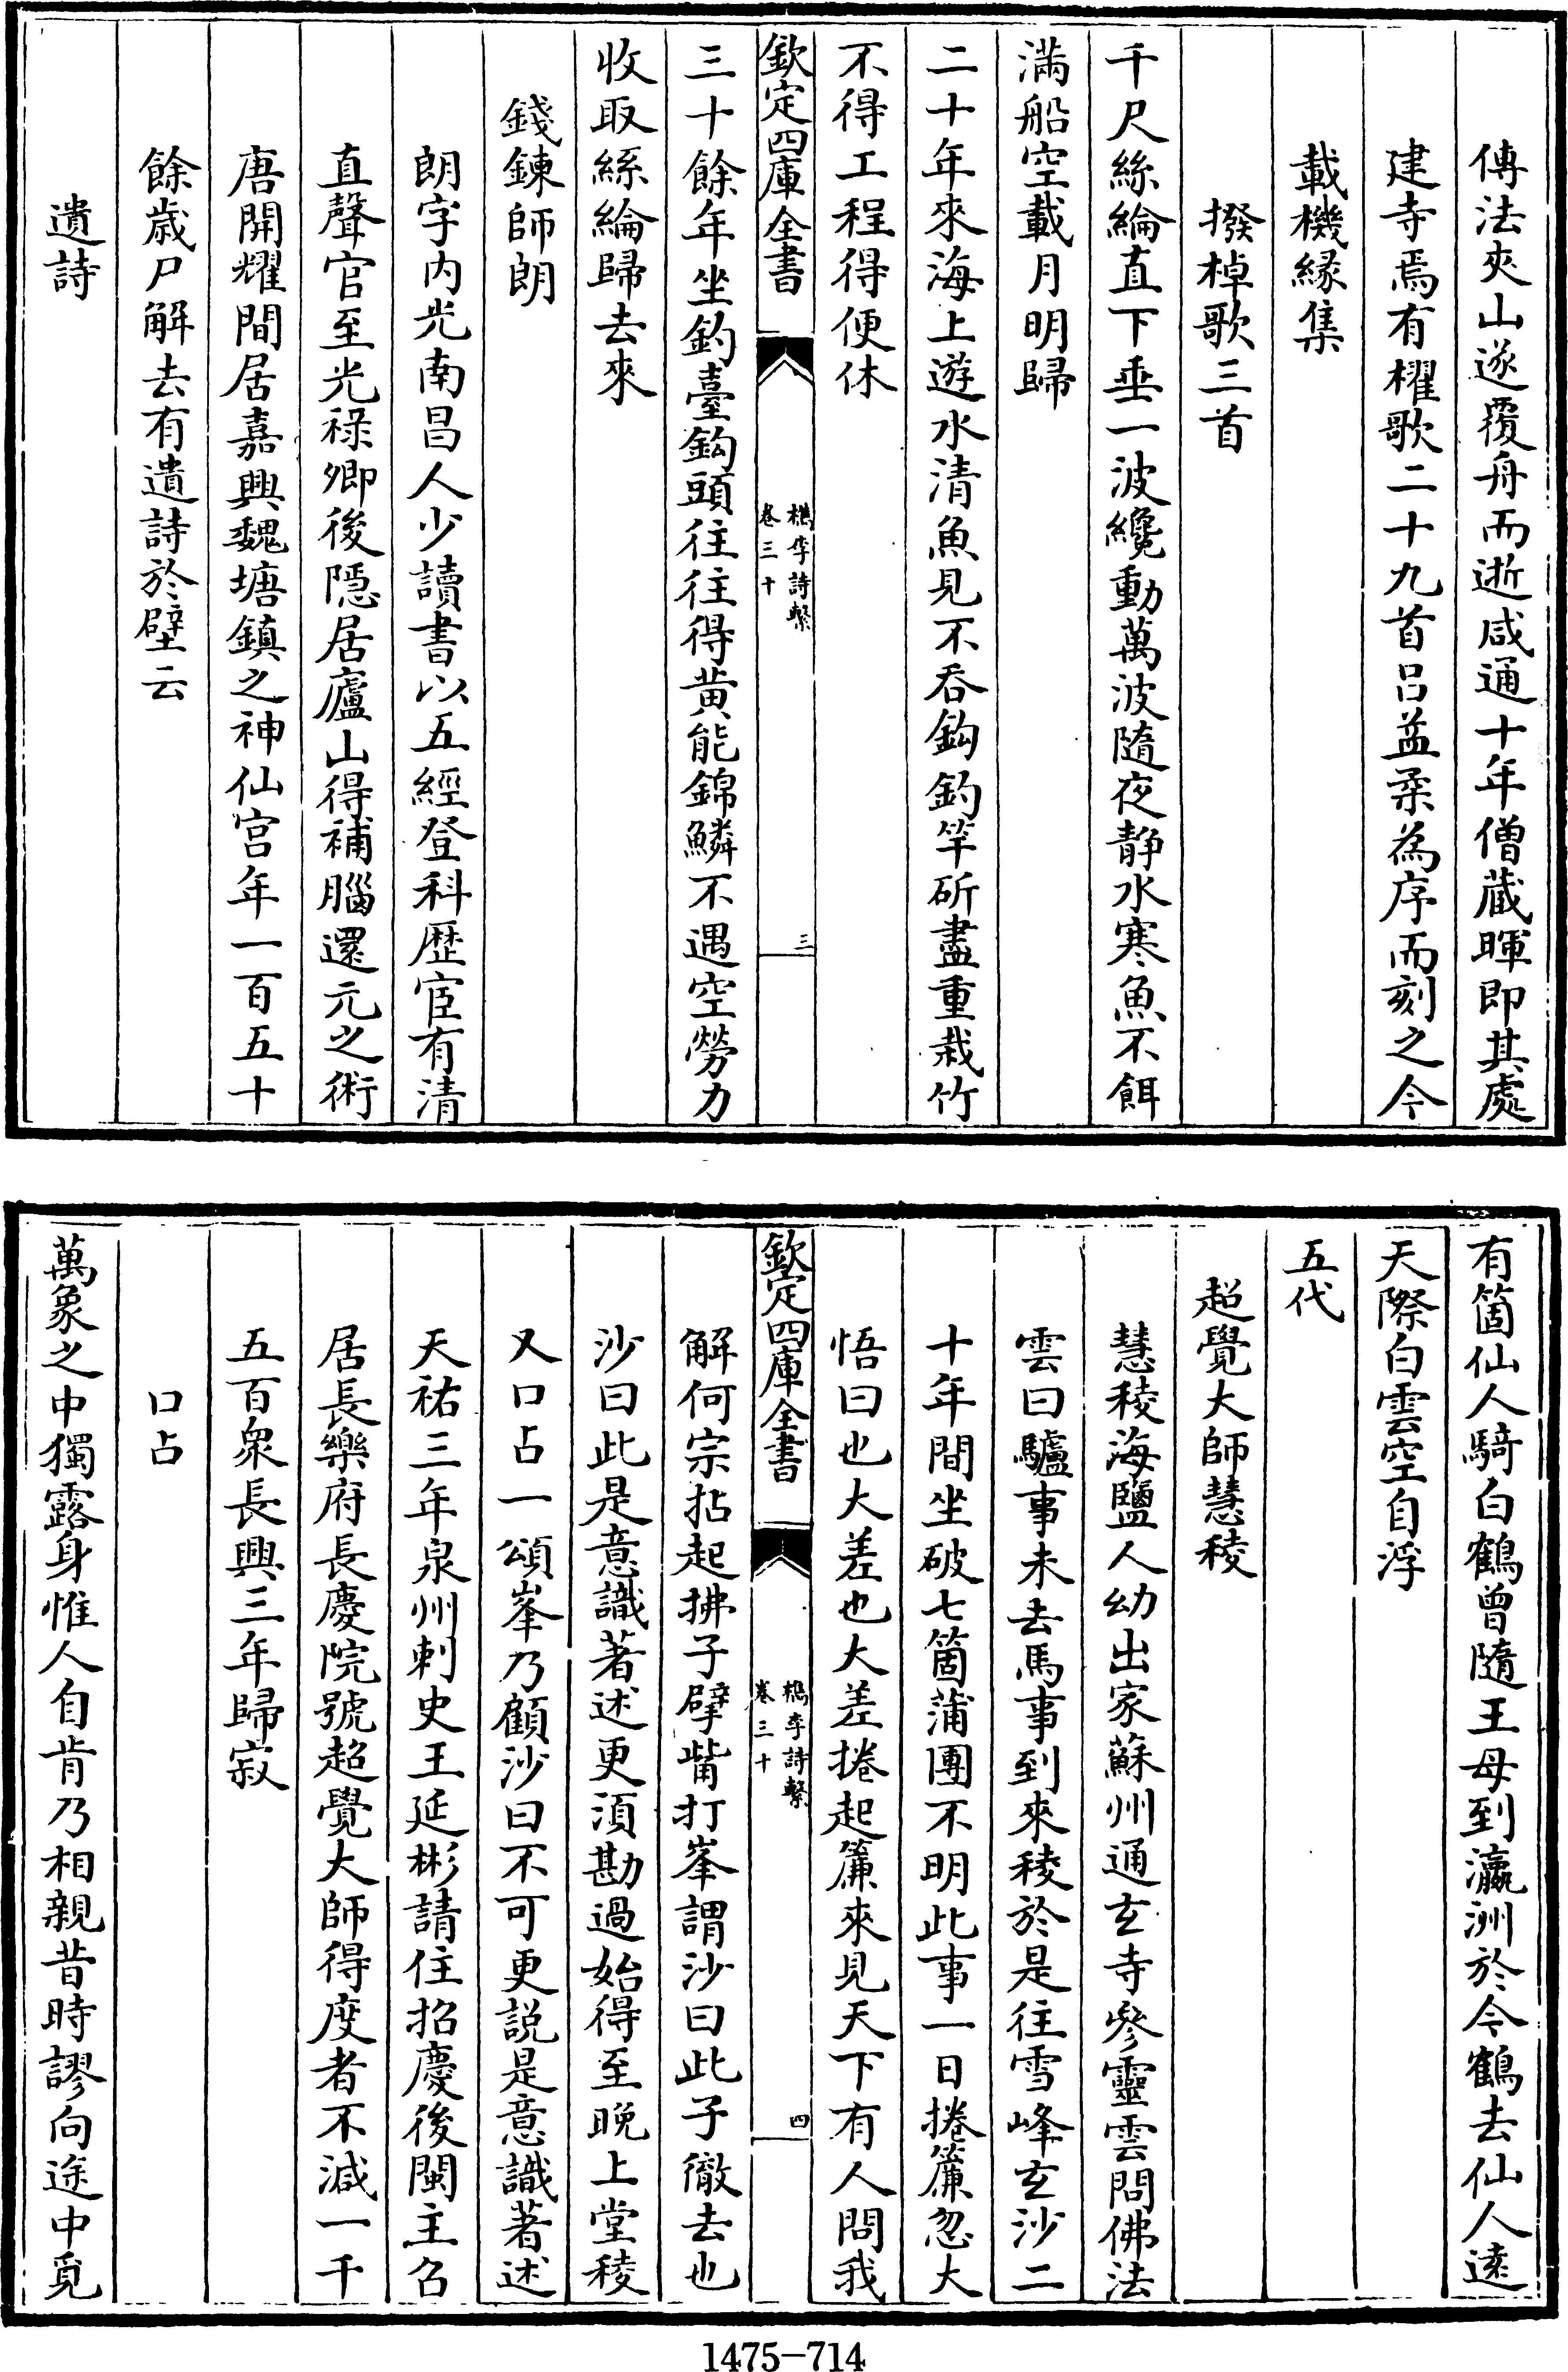 傳法夾山遂覆舟而逝咸通十年僧藏暉即其處
建寺焉有櫂歌二十九首呂益柔為序而刻之今
載機緣集
撥棹歌三首
千尺絲綸直下垂一波纔動萬波隨夜靜水寒魚不餌
滿船空載月明歸
二十年來海上遊水清魚見不吞鈎釣竿斫盡重栽竹
不得工程得便休
欽定四庫全書
檇李詩繫
卷三十
三
三十餘年坐釣臺鈎頭往往得黄能錦鱗不遇空勞力
收取絲綸歸去來
錢鍊師朗
朗字内光南昌人少讀書以五經登科歷宦有清
直聲官至光祿卿後隱居廬山得補腦還元之術
唐開耀間居嘉興魏塘鎮之神仙宫年一百五十
餘歲尸解去有遺詩於壁云
遺詩
有箇仙人騎白鶴曾隨王母到瀛洲於今鶴去仙人遠
天際白雲空自浮
五代
超覺大師慧稜
慧稜海鹽人幼出家蘇州通玄寺參靈雲問佛法
雲曰驢事未去馬事到來稜於是往雪峰玄沙二
十年間坐破七箇蒲團不明此事一日捲簾忽大
悟曰也大差也大差捲起簾來見天下有人問我
欽定四庫全書
檇李詩繫
卷三十
四
解何宗拈起拂子劈觜打峯謂沙曰此子徹去也
沙曰此是意識著述更須勘過始得至晚上堂稜
又口占一頌峯乃顧沙曰不可更説是意識著述
天祐三年泉州刺史王延彬請住招慶後閩主召
居長樂府長慶院號超覺大師得度者不減一千
五百衆長興三年歸寂
口占
萬象之中獨露身惟人自肯乃相親昔時謬向途中覓
1475-714